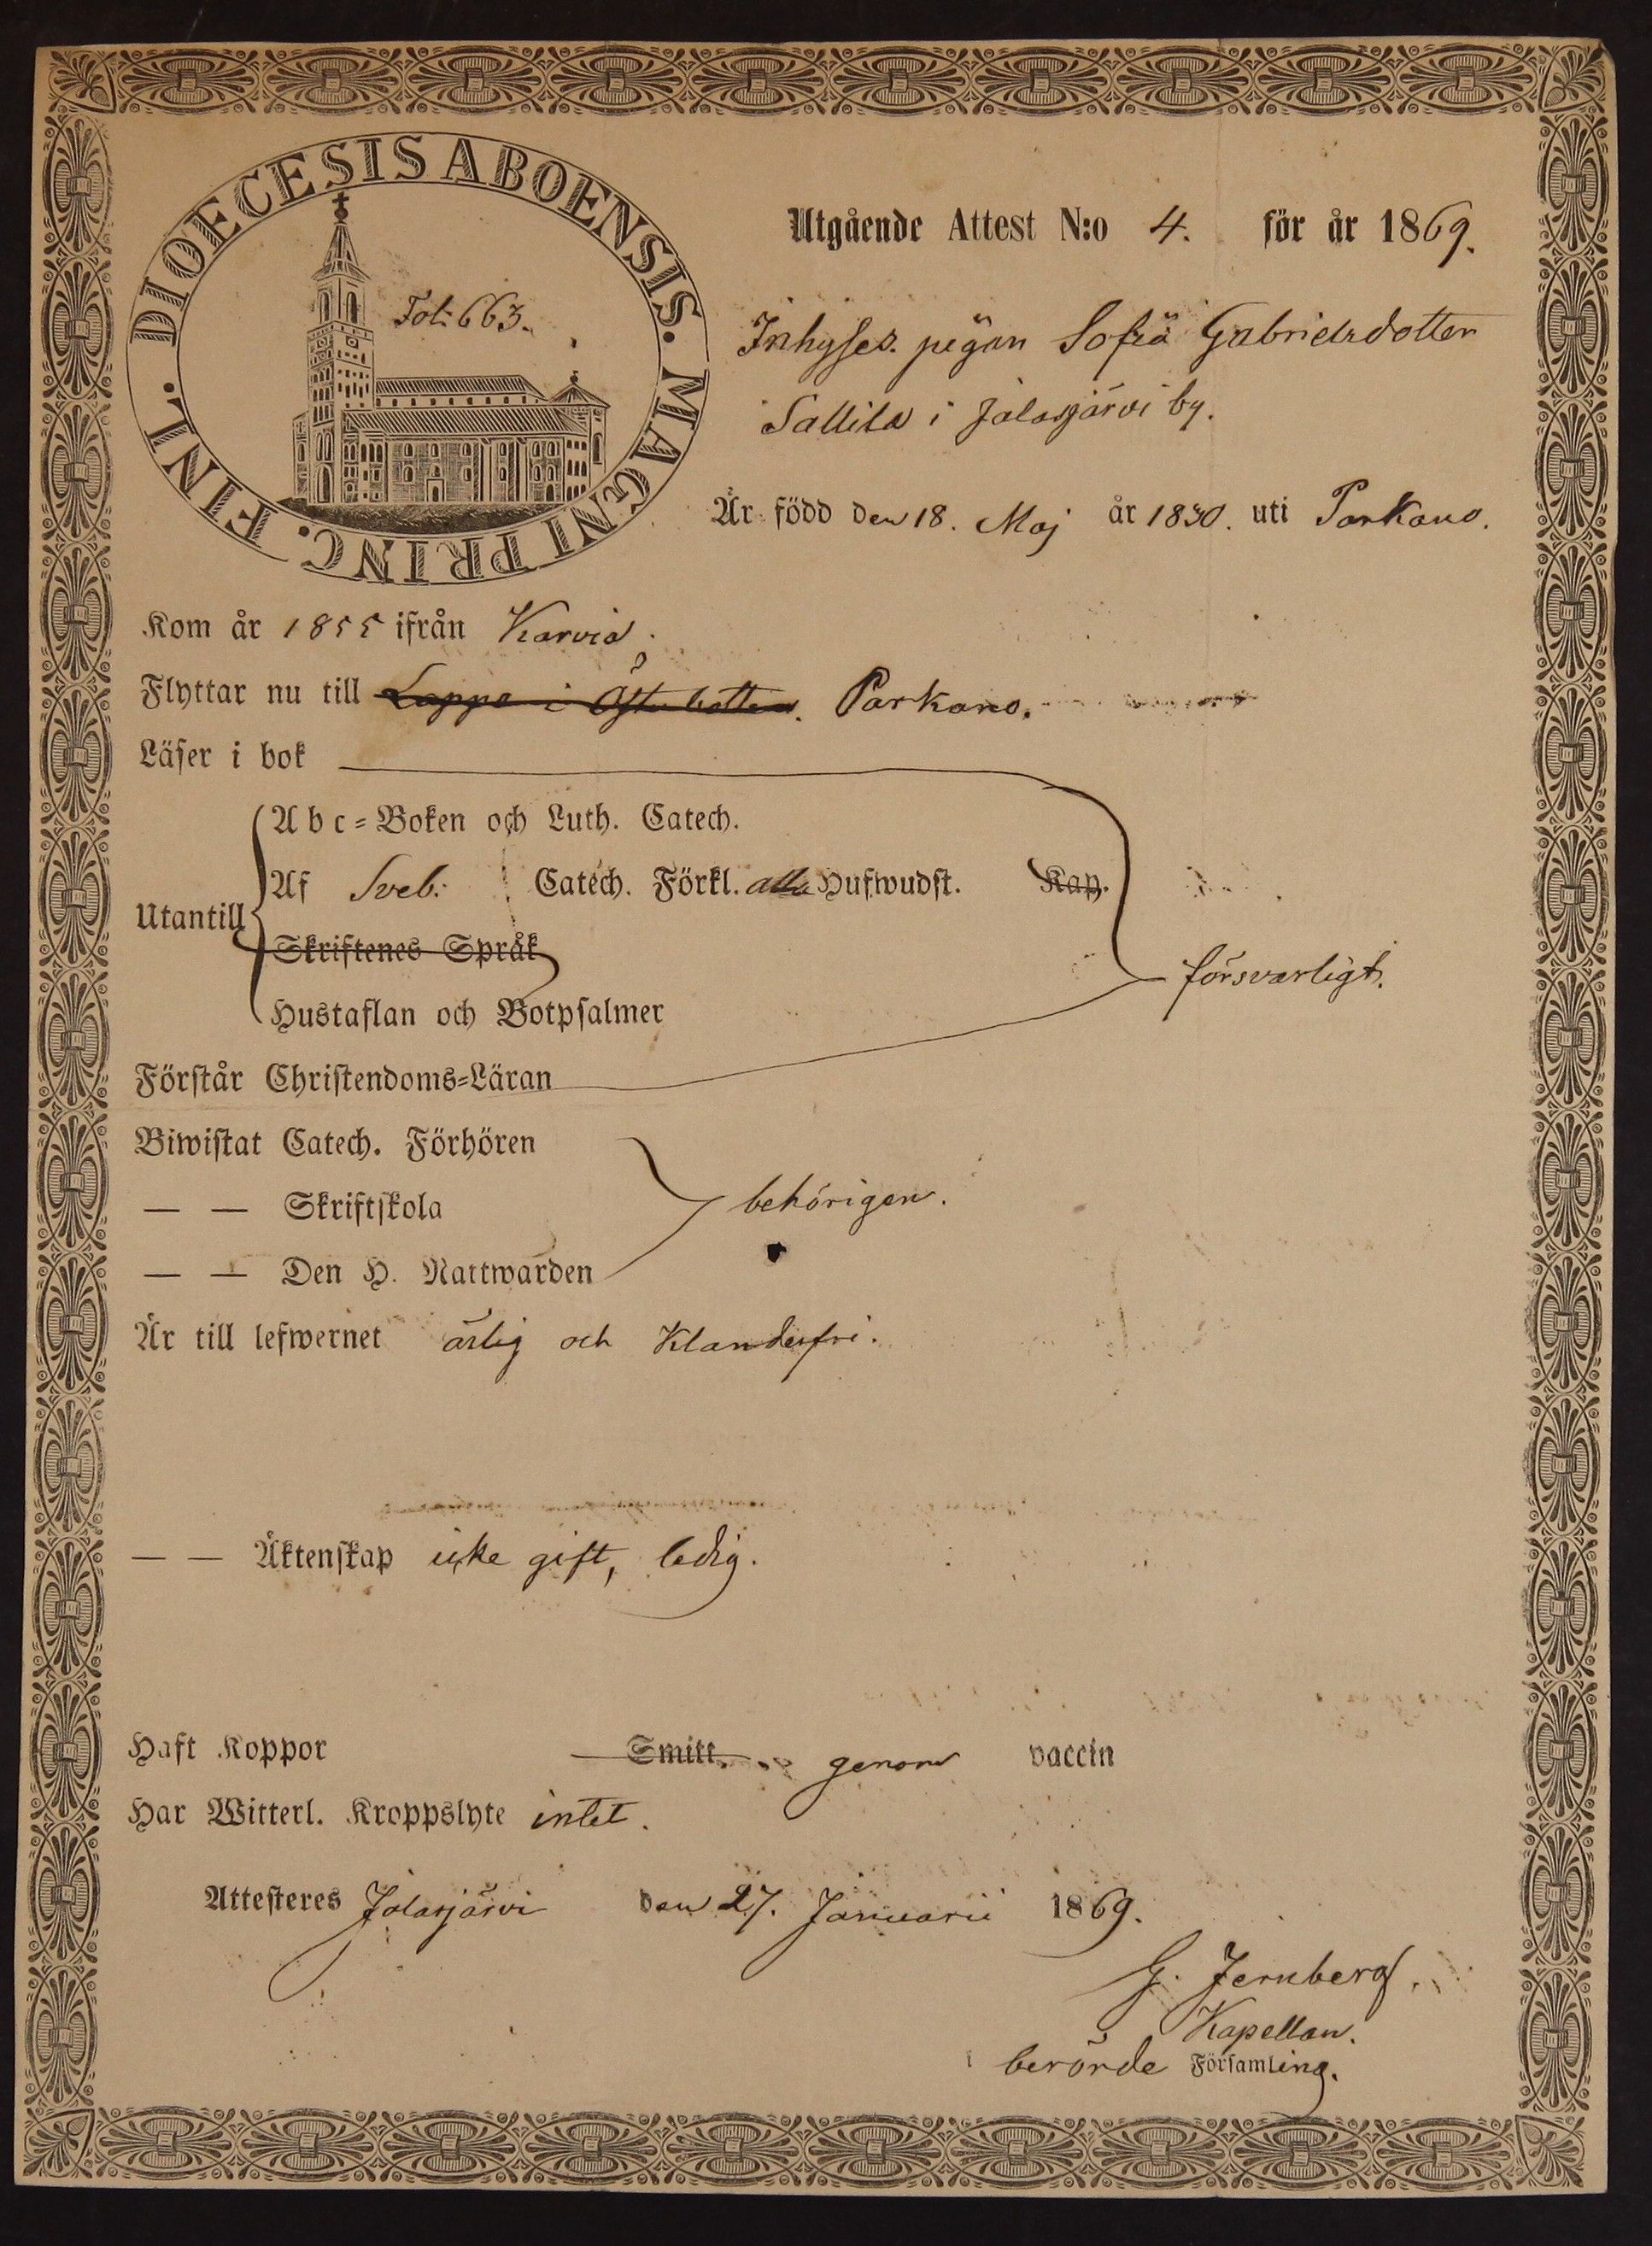 DIOECESIS ABOENSIS. MAGNI PRINC. FINL.
Fol: 663.
Utgående Attest N:o 4. för år 1869.
Inhyses pigan Sofia Gabrielsdotter
Sallila i Jalasjärvi by.
Är född den 18. Maj år 1830. uti Parkano.
Kom år 1855 ifrån Karvia.
Flyttar nu till Lappo i Österbotten. Parkano.
Läser i bok
Utantill
Abc-Boken och Luth. Catech.
Af Sveb: Catech. Förkl. alla Hufwudst. Kap.
Skriftenes Språk
Hustaflan och Botpsalmer
försvarligt.
Förstår Christendoms-Läran
Biwistat Catech. Förhören
— — Skriftskola behörigen.
— — Den H. Nattwarden
Är till lefwernet ärlig och Klanderfri.
— — Äktenskap icke gift, ledig.
Haft Koppor Smitt. genom vaccin
Har Witterl. Kroppslyte intet.
Attesteres Jalasjärvi den 27. Januarii 1869.
G. Jernberg.
Kapellan.
berörde Församling.